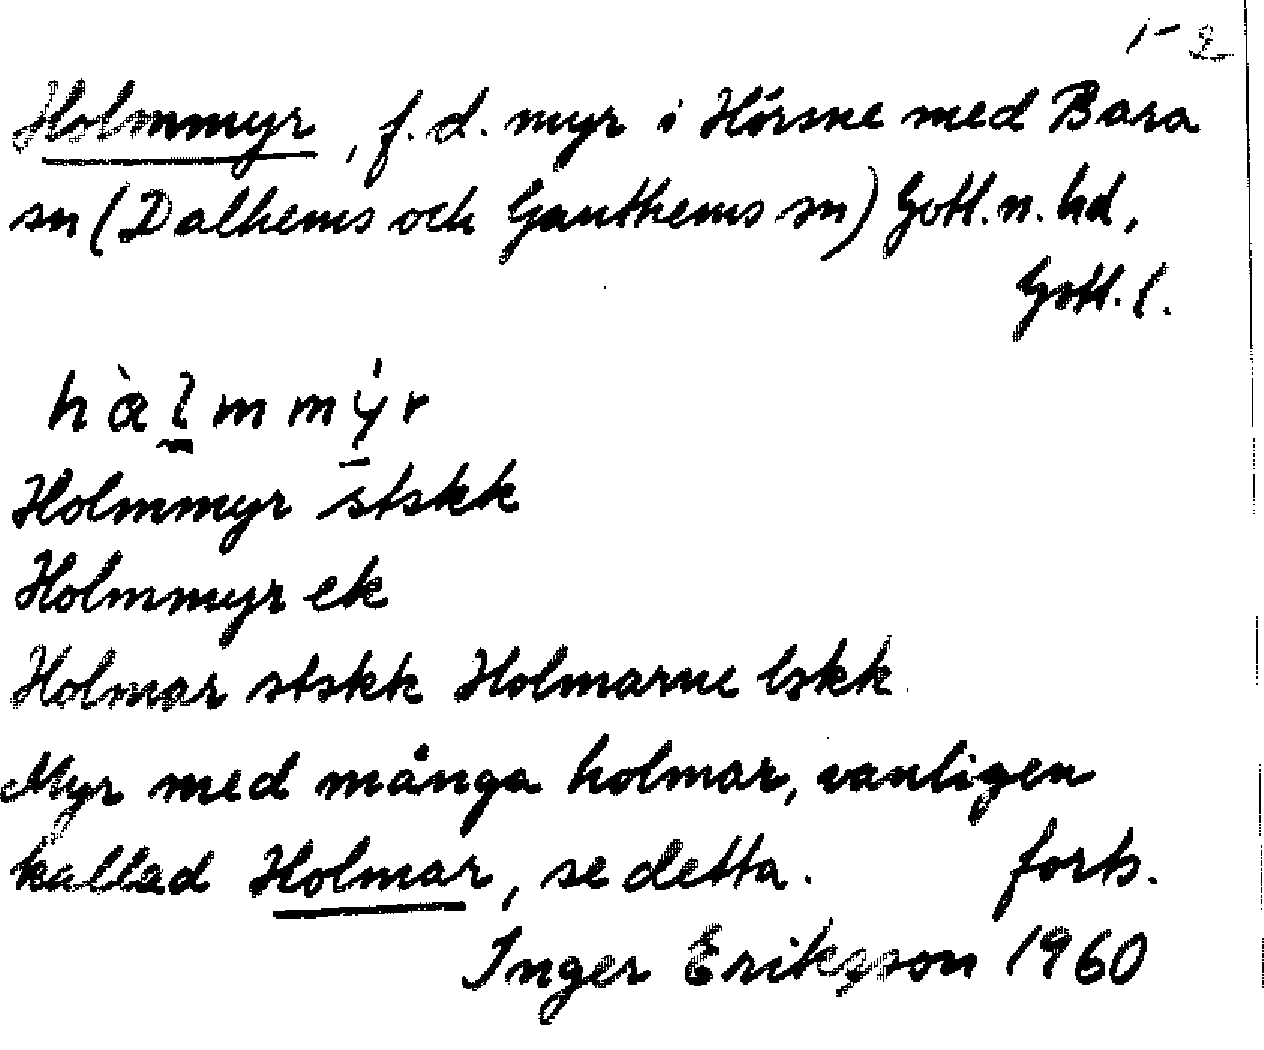 1-2
Holmmyr, f.d. myr i Hörsne med Bara
sn (Dalhems och Ganthems sn) Gotl. n. hd,
Gotl. l.
Holmmyr stskk
Holmmyr ek
Holmar stskk Holmarne lskk
Myr med många holmar, vanligen
kallad Holmar, se detta. forts.
Inger Eriksson 1960